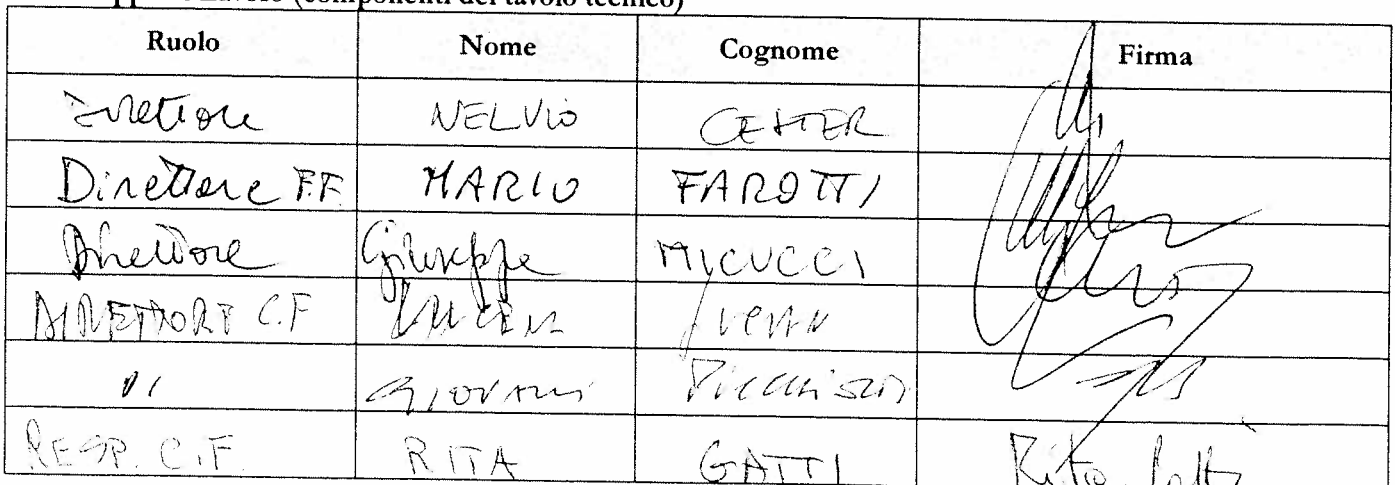 Lavoro (componenti del tavolo tecnico)
Ruolo Nome Cognome Firma
Direttore NELVIO CESTER
Direttore F.F. MARIO FAROTTI
Direttore Giuseppe MICUCCI
DIRETTORE C.F
GIOVANNI
RESP. C.F. RITA GATTI Rita Gatti